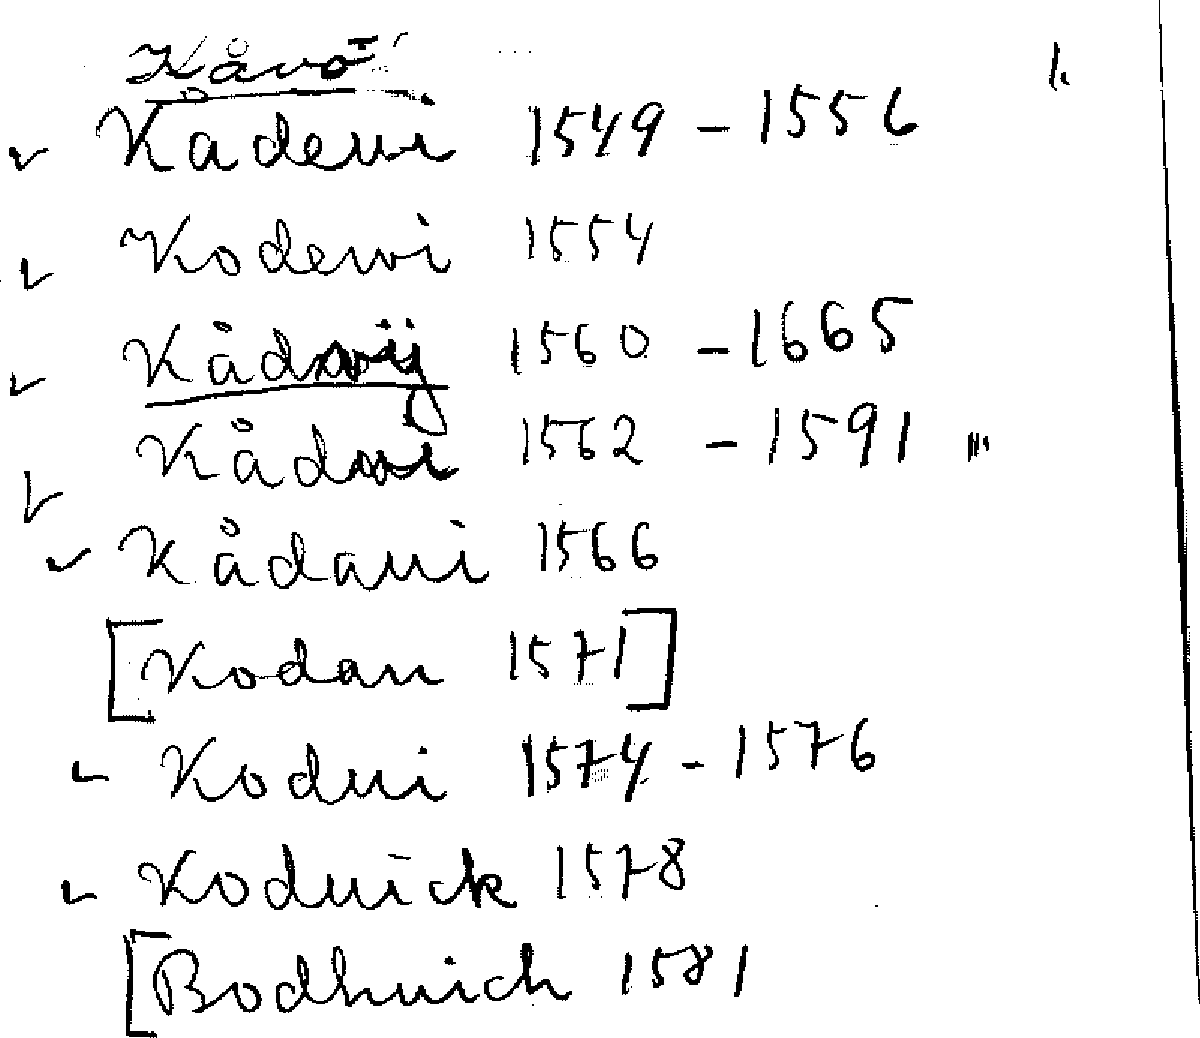 Kåvö 1.
Kådevi 1549 - 1556
Kodewi 1554
Kådwij 1560 - 1665
Kådvi 1562 - 1591 "'
Kådaui 1566
[Kodau 1571]
Kodui 1574 - 1576
Koduick 1578
[Bodhuich 1581